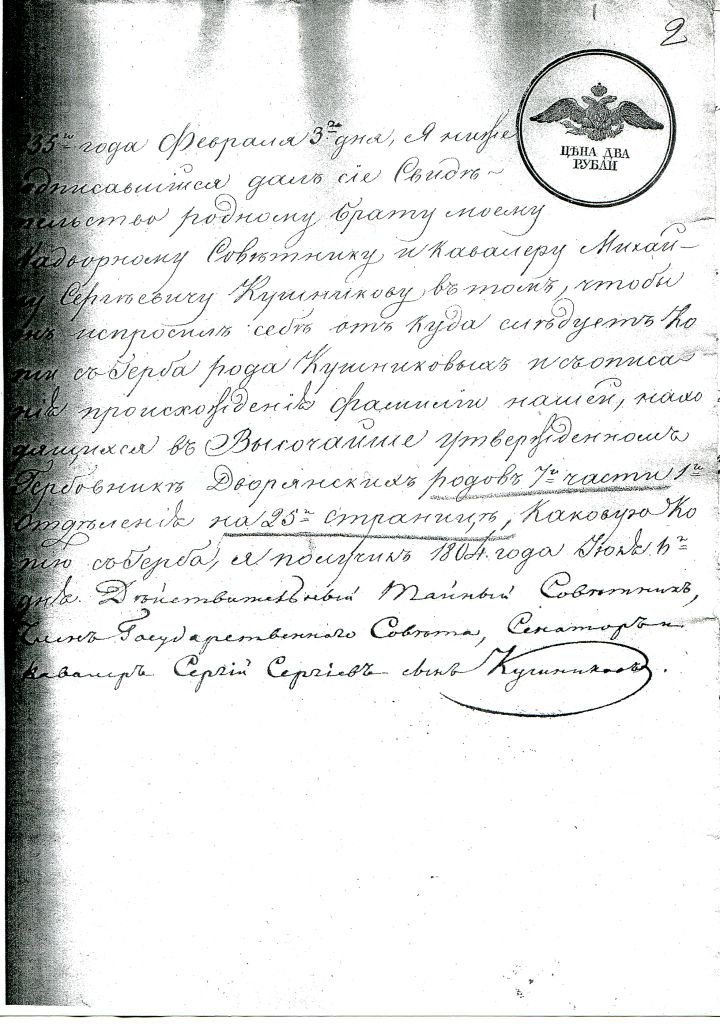 2
ЦѢНА ДВА
РУБЛИ
835го года Февраля 3го дня, Я ниже
одписавшійся далъ сіе Свидѣ-
тельство родному брату моему
Надворному Совѣтнику и Кавалеру Михай-
лу Сергѣевичу Кушникову въ томъ, чтобы
онъ испросилъ себѣ отъ куда слѣдуетъ Ко
піи съ Герба рода Кушниковыхъ и съ описа
нія происхожденія фамиліи нашей, нахо
дящихся въ Высочайше утвержденномъ
Гербовникѣ Дворянскихъ родовъ 7й части 1го
Отдѣленія на 25й страницѣ, Каковую Ко
пію съ Герба, я получилъ 1804 года Іюня
дня. Дѣйствительный Тайный Совѣтникъ,
Членъ Государственнаго Совѣта, Сенаторъ и
кавалеръ Сергій Сергѣевъ сынъ Кушниковъ.